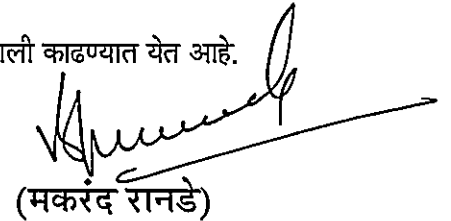 काढण्यात येत आहे.
(मकरंद रानडे)